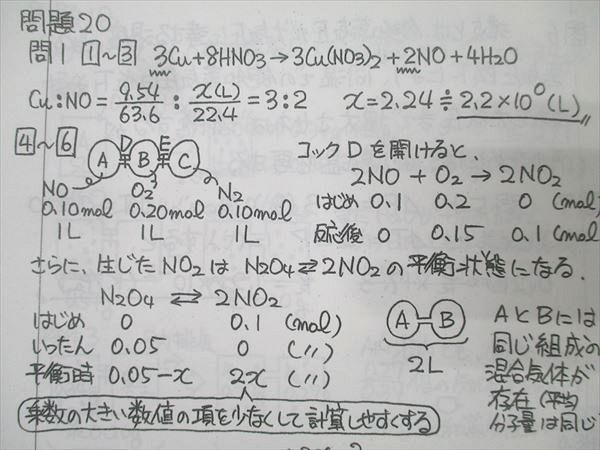 問題20
問1 1~3 3Cu+8HNO3→3Cu(NO3)2+2NO+4H2O
Cu:NO=9.54/63.6:x(L)/22.4=3:2 x=2.24≒2.2×10⁰(L)
4~6 A D B E C コックDを開けると、
NO O2 N2 2NO + O2 → 2NO2
0.10mol 0.20mol 0.10mol はじめ 0.1 0.2 0 (mol)
1L 1L 1L 反応後 0 0.15 0.1 (mol)
さらに、生じたNO2はN2O4⇄2NO2の平衡状態になる.
N2O4 ⇄ 2NO2
はじめ 0 0.1 (mol)
いったん 0.05 0 (〃)
平衡時 0.05-x 2x (〃)
A B
2L
AとBには
同じ組成の
混合気体が
存在(平均
分子量は同じ
乗数の大きい数値の項を少なくして計算しやすくする